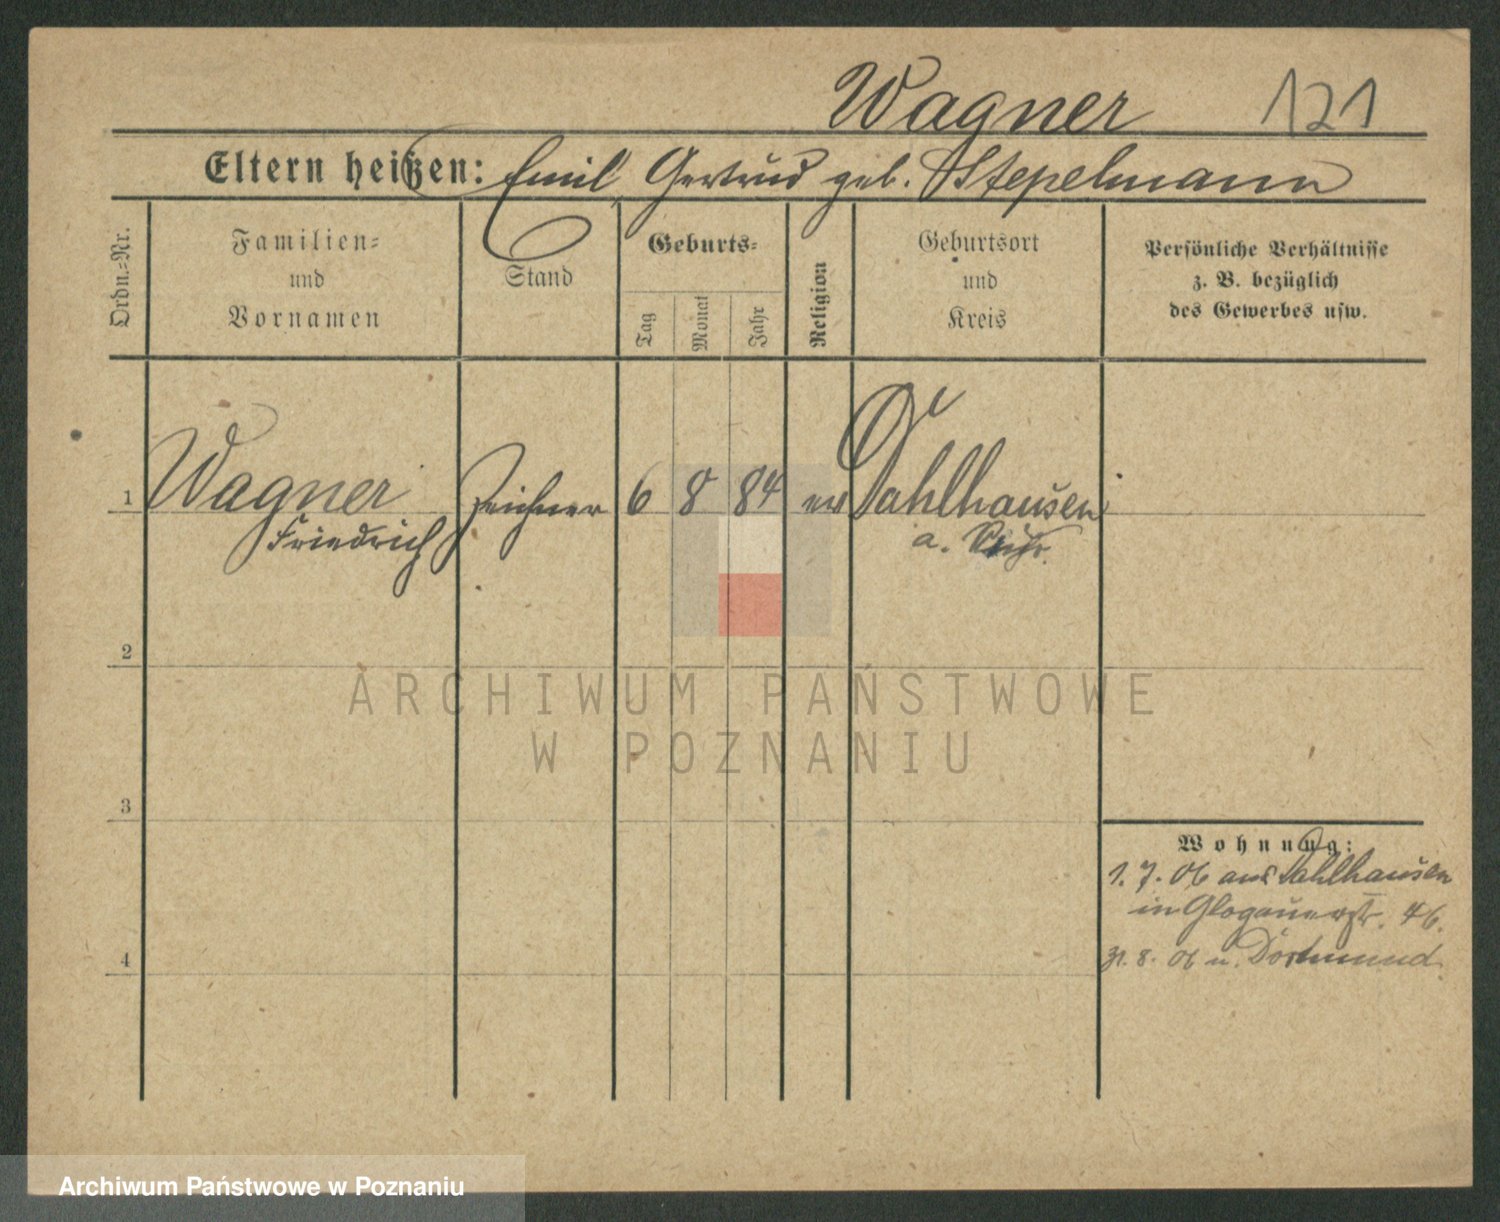 Wagner 121
Eltern heißen: Emil, Gertrud geb. Stepelmann
Ordn.-Nr.
Familien-
und
Vornamen
Stand
Geburts-
Tag
Monat
Jahr
Religion
Geburtsort
und
Kreis
Persönliche Verhältnisse
z. B. bezüglich
des Gewerbes usw.
1 Wagner Zeichner 6 8 84 ev Dahlhausen
Friedrich a. Ruhr.
2
ARCHIWUM PAŃSTWOWE
W POZNANIU
3
Wohnung:
1. 7. 06 aus Dahlhausen
in Glogauerstr. 46.
4
31. 8. 06 n. Dortmund.
Archiwum Państwowe w Poznaniu